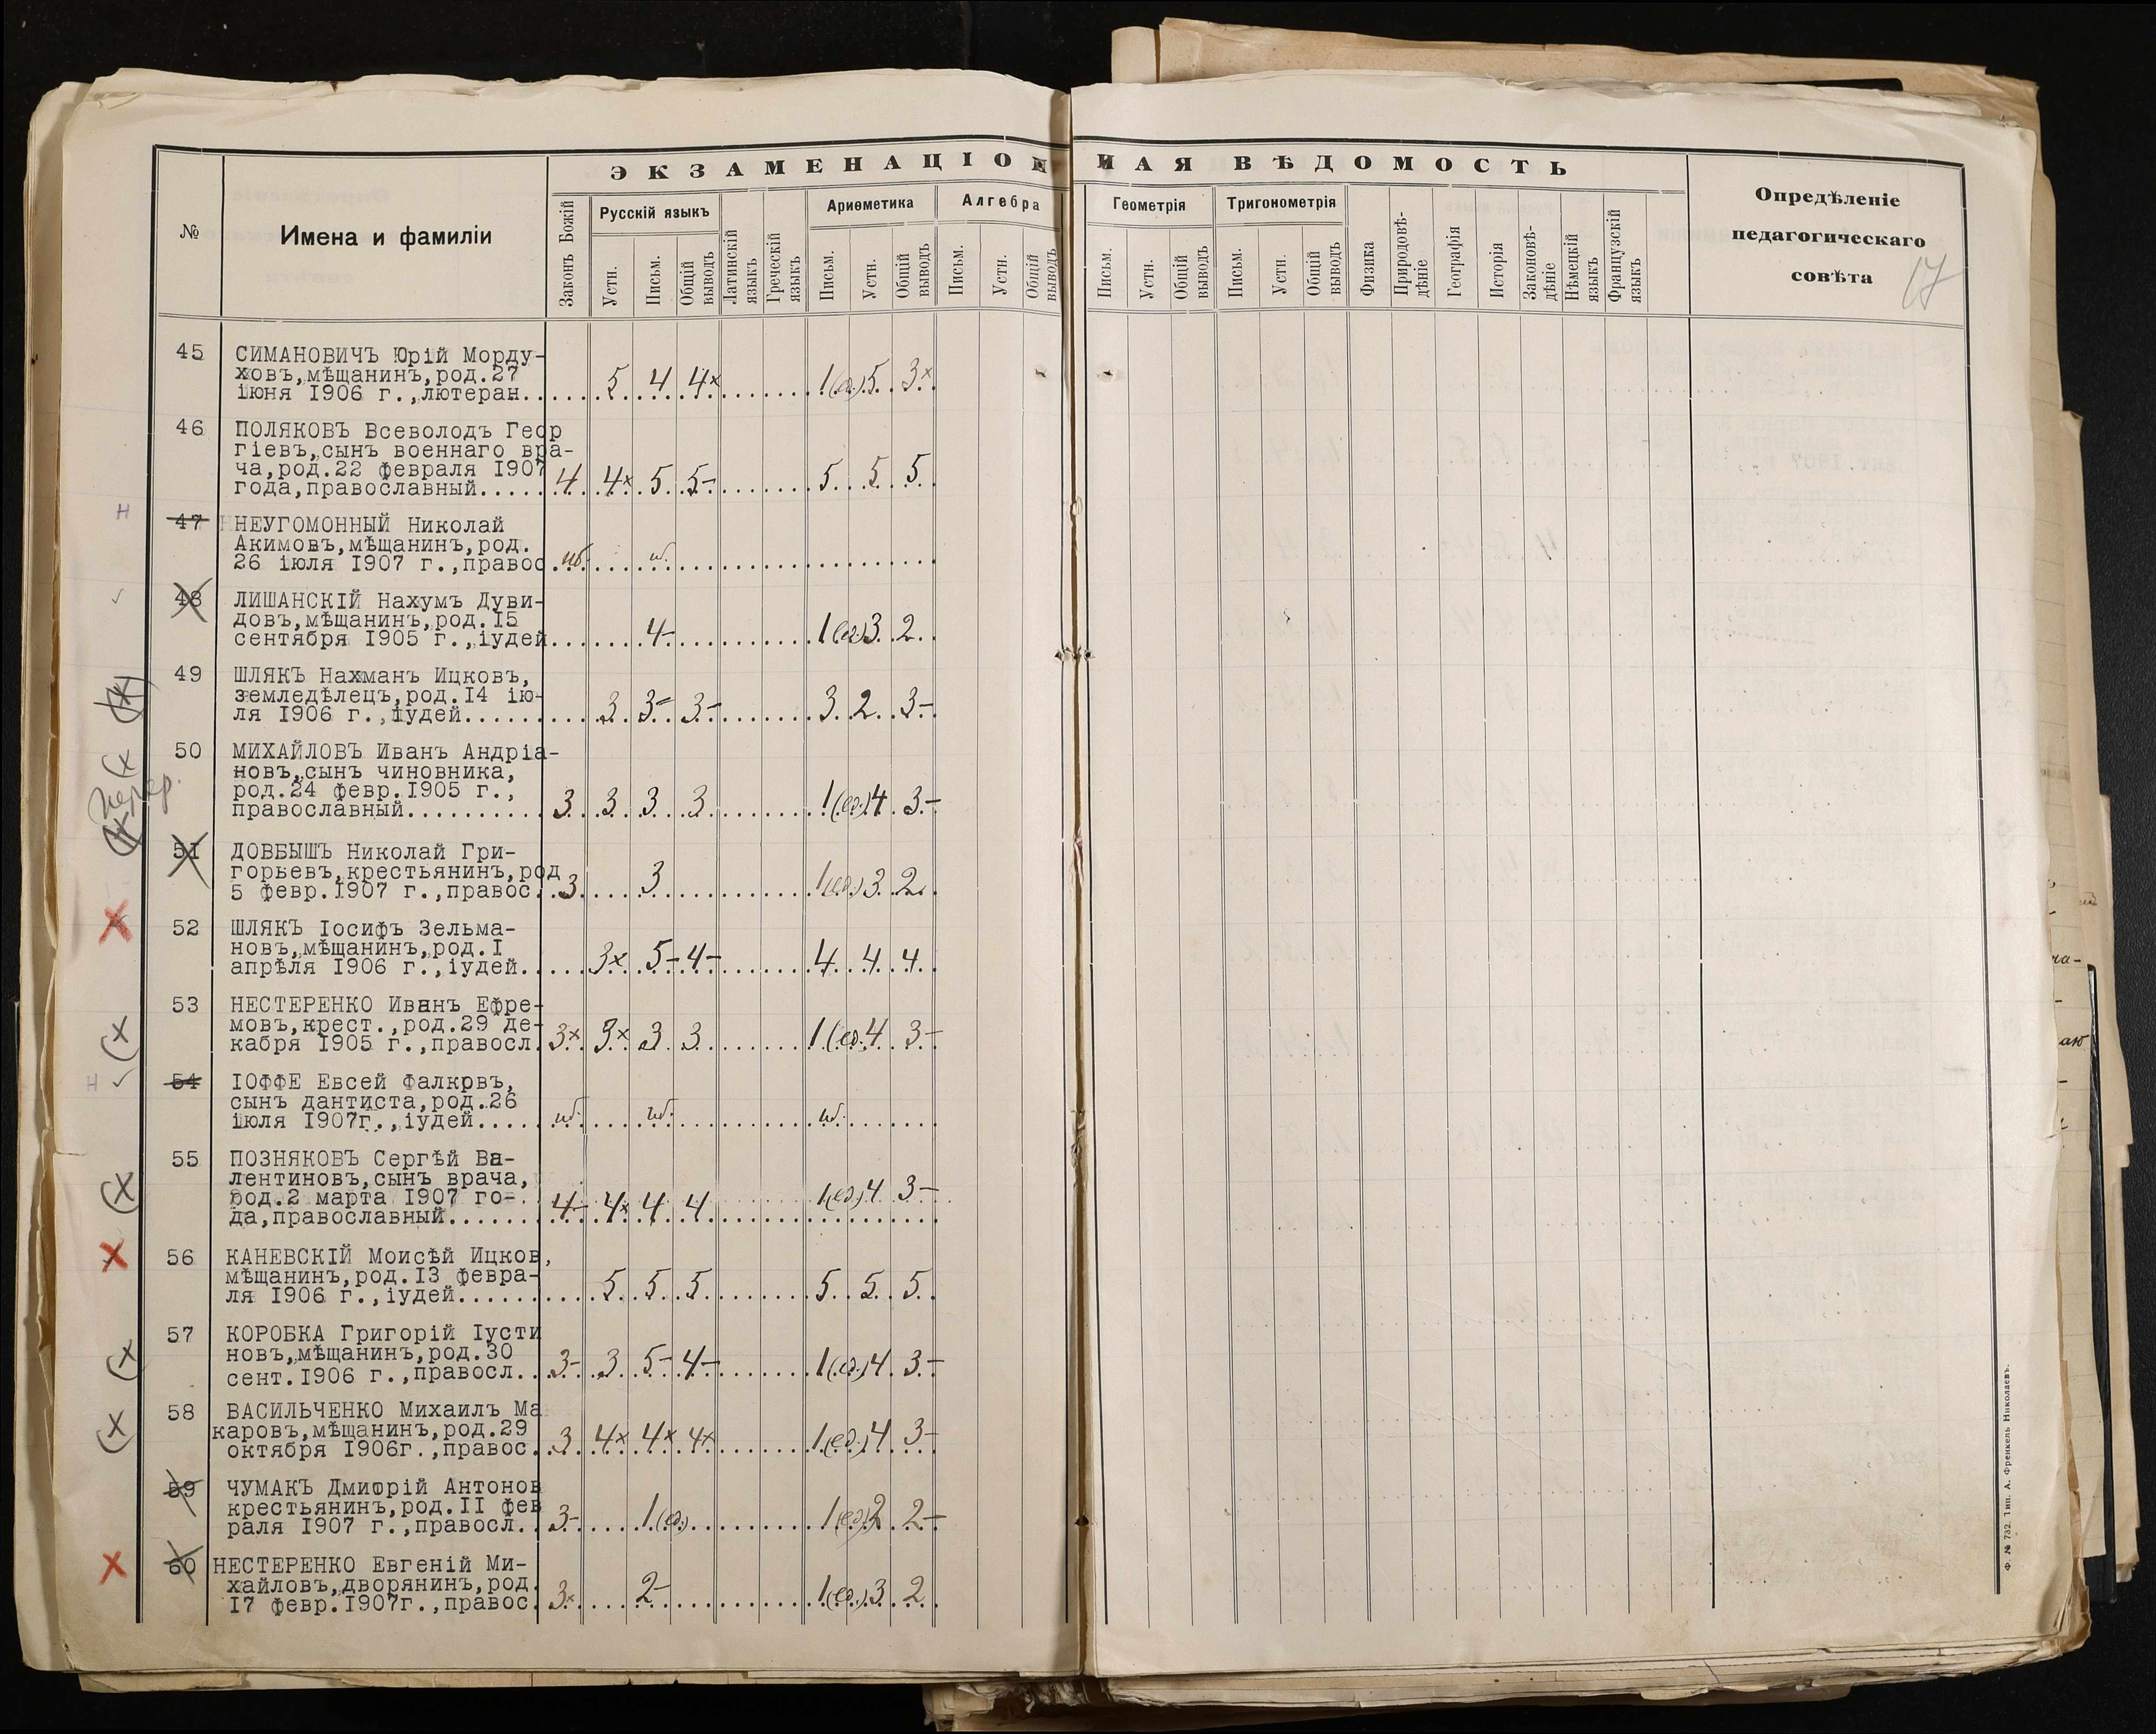 ЭКЗАМЕНАЦІОННАЯ ВѢДОМОСТЬ
№
Имена и фамиліи
Законъ Божій
Русскій языкъ
Устн.
Письм.
Общій выводъ
Латинскій языкъ
Греческій языкъ
Ариѳметика
Письм.
Устн.
Общій выводъ
Алгебра
Письм.
Устн.
Общій выводъ
Геометрія
Письм.
Устн.
Общій выводъ
Тригонометрія
Письм.
Устн.
Общій выводъ
Физика
Природовѣ-
дѣніе
Географія
Исторія
Законовѣ-
дѣніе
Нѣмецкій языкъ
Французскій языкъ
Опредѣленіе
педагогическаго
совѣта
17
45 СИМАНОВИЧЪ Юрій Морду-
ховъ,мѣщанинъ,род.27
іюня 1906 г.,лютеран. 5 4 4× 1(ед.) 5 3×
46 ПОЛЯКОВЪ Всеволодъ Геор
гіевъ,сынъ военнаго вра-
ча,род.22 февраля 1907
года,православный..... 4 4× 5 5- 5 5 5
Н 47 НЕУГОМОННЫЙ Николай
Акимовъ,мѣщанинъ,род.
26 іюля 1907 г.,правос. нб. нб.
48 ЛИШАНСКІЙ Нахумъ Дуви-
довъ,мѣщанинъ,род.15
сентября 1905 г.,іудей 4- 1(ед.) 3 2
49 ШЛЯКЪ Нахманъ Ицковъ,
земледѣлецъ,род.14 ію-
ля 1906 г.,іудей...... 3 3- 3- 3 2 3-
50 МИХАЙЛОВЪ Иванъ Андріа-
новъ,сынъ чиновника,
род.24 февр.1905 г.,
православный.......... 3 3 3 3 1(ед.) 4 3-
51 ДОВБЫШЪ Николай Гри-
горьевъ,крестьянинъ,род
5 февр.1907 г.,правос. 3 3 1(ед.) 3 2
× 52 ШЛЯКЪ Іосифъ Зельма-
новъ,мѣщанинъ,род.I
апрѣля 1906 г.,іудей. 3× 5- 4- 4 4 4
(× 53 НЕСТЕРЕНКО Иванъ Ефре-
мовъ,крест.,род.29 де-
кабря 1905 г.,правосл. 3× 3× 3 3 1(ед.) 4 3-
Н 54 ІОФФЕ Евсей Фалковъ,
сынъ дантиста,род.26
іюля 1907г.,іудей..... нб. нб. нб.
(× 55 ПОЗНЯКОВЪ Сергѣй Ва-
лентиновъ,сынъ врача,
род.2 марта 1907 го-
да,православный....... 4- 4× 4 4 1(ед.) 4 3-
× 56 КАНЕВСКІЙ Моисѣй Ицков,
мѣщанинъ,род.13 февра-
ля 1906 г.,іудей...... 5 5 5 5 5 5
(× 57 КОРОБКА Григорій Іусти
новъ,мѣщанинъ,род.30
сент.1906 г.,правосл.. 3- 3 5- 4- 1(ед.) 4 3-
(× 58 ВАСИЛЬЧЕНКО Михаилъ Ма
каровъ,мѣщанинъ,род.29
октября 1906г.,правос. 3 4× 4× 4× 1(ед.) 4 3-
59 ЧУМАКЪ Дмитрій Антонов
крестьянинъ,род.II фев
раля 1907 г.,правосл.. 3- 1(ед.) 1(ед.) 2 2-
× 60 НЕСТЕРЕНКО Евгеній Ми-
хайловъ,дворянинъ,род.
17 февр.1907г.,правос. 3× 2- 1(ед.) 3 2
Ф. № 732. Тип. А. Френкель Николаевъ.